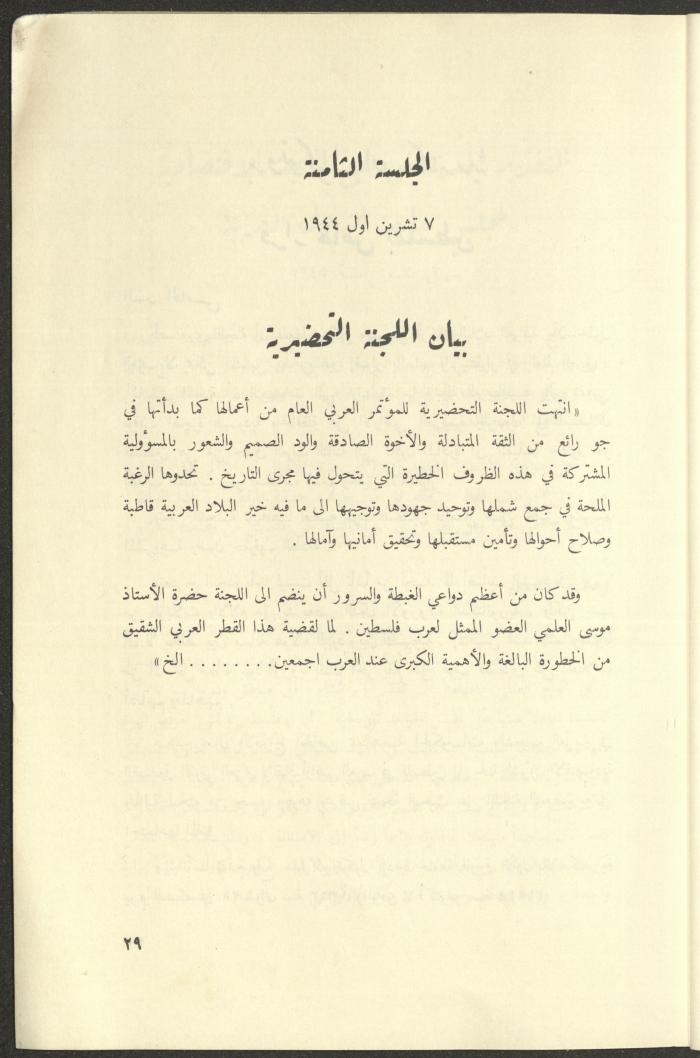 الجلسة الثامنة
٧ تشرين اول ١٩٤٤
بيان اللجنة التحضيرية
«انتهت اللجنة التحضيرية للمؤتمر العربي العام من أعمالها كما بدأتها في
جو رائع من الثقة المتبادلة والأخوة الصادقة والود الصميم والشعور بالمسؤولية
المشتركة في هذه الظروف الخطيرة التي يتحول فيها مجرى التاريخ . تحدوها الرغبة
الملحة في جمع شملها وتوحيد جهودها وتوجيهها الى ما فيه خير البلاد العربية قاطبة
وصلاح أحوالها وتأمين مستقبلها وتحقيق أمانيها وآمالها .
وقد كان من أعظم دواعي الغبطة والسرور أن ينضم الى اللجنة حضرة الأستاذ
موسى العلمي العضو الممثل لعرب فلسطين . لما لقضية هذا القطر العربي الشقيق
من الخطورة البالغة والأهمية الكبرى عند العرب اجمعين. . . . . . . . الخ»
٢٩